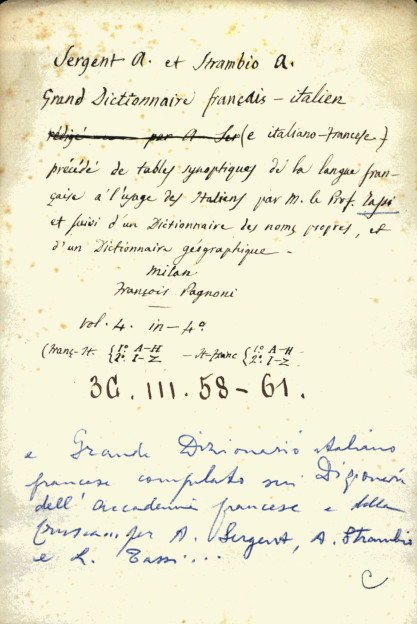 Sergent A. et Strambio A.
Grand Dictionnaire français - italien
rédigé par A Ser (e italiano-Francese)
précédé de tables synoptiques de la langue fran-
çaise a l'usage des Italiens par M. le Prof. Tassi
et suivi d'un Dictionnaire des noms propres, et
d'un Dictionnaire géographique -
Milan
François Pagnoni
vol. 4. in-4°
(Franç-It. { 1° A-H - It-Franc { 1° A-H
2° I-Z 2° I-Z
3C. III. 58-61.
e Grande Dizionario italiano
francese compilato sui Dizionari
dell'Accademia francese e della
Crusca... per A. Sergent, A. Strambio
e L. Tassi...
C